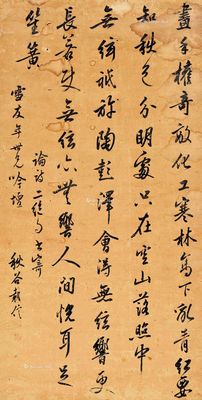 尽手擅奇敵化工寒林高下亂青紅要
知秋色分明處只在空山落照中
無絃祇許陶彭澤會得無絃響更
長若使無絃亦無響人間悅耳是
笙簧
雪友年世兄吟壇
論詩二絕句書寄
秋谷